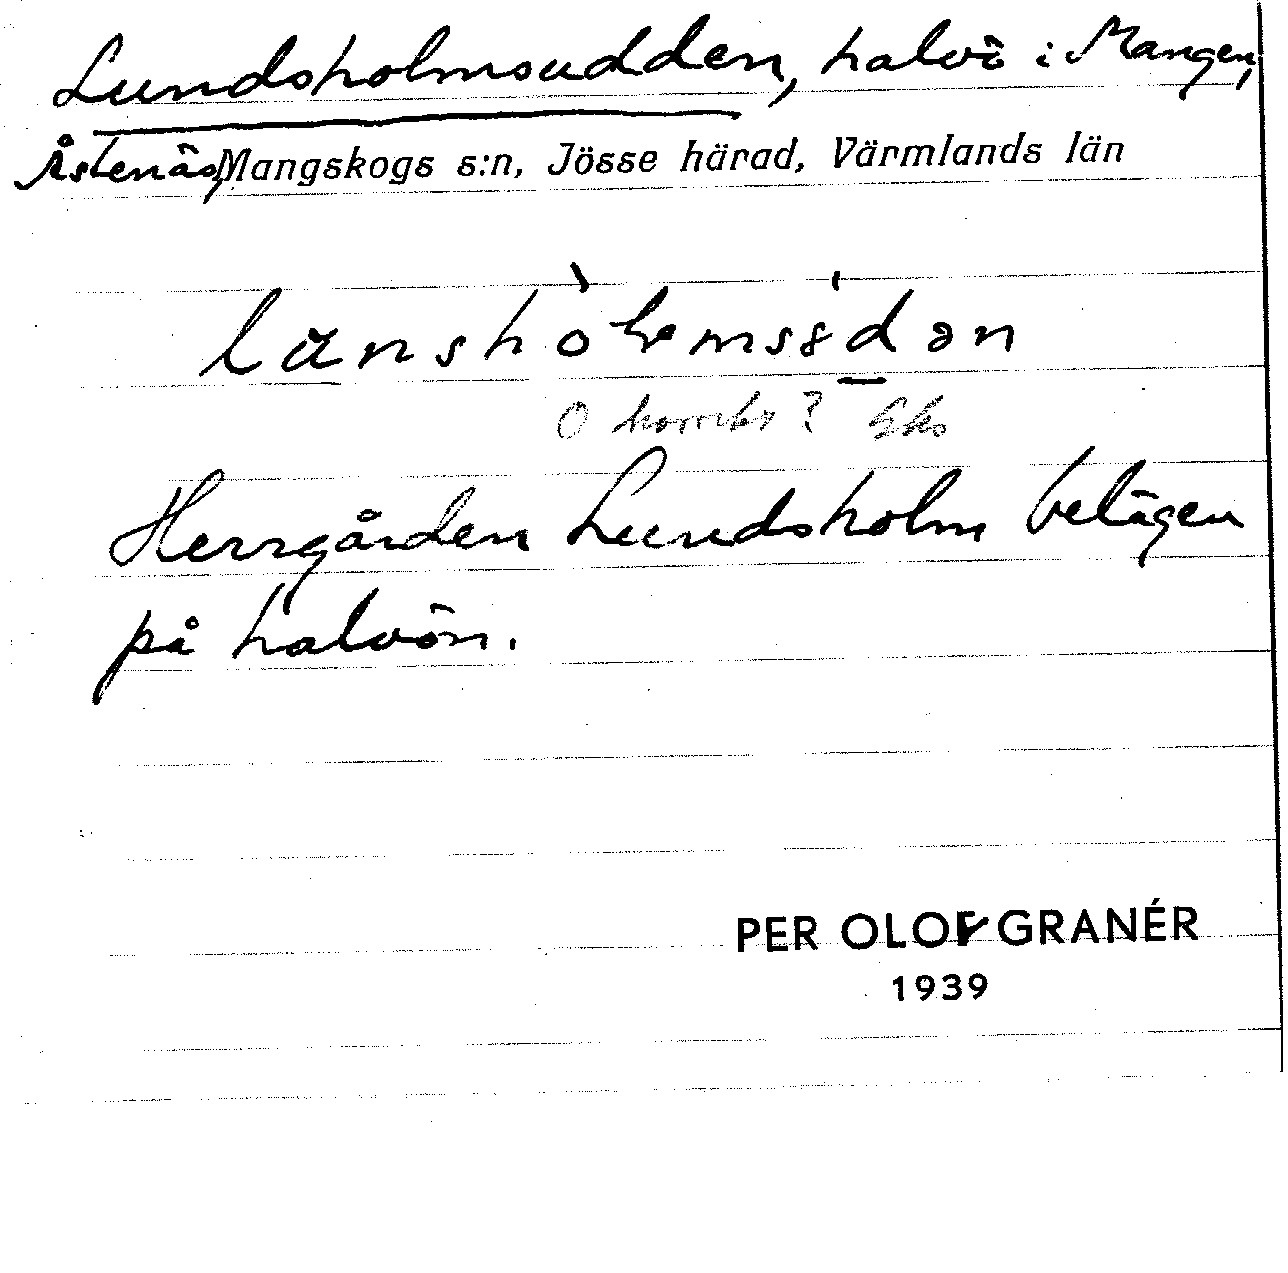 Lundsholmsudden, halvö i Mangen,
Åstenäs, Mangskogs s:n, Jösse härad, Värmlands län
Herrgården Lundsholm belägen
på halvön.
PER OLOF GRANÉR
1939